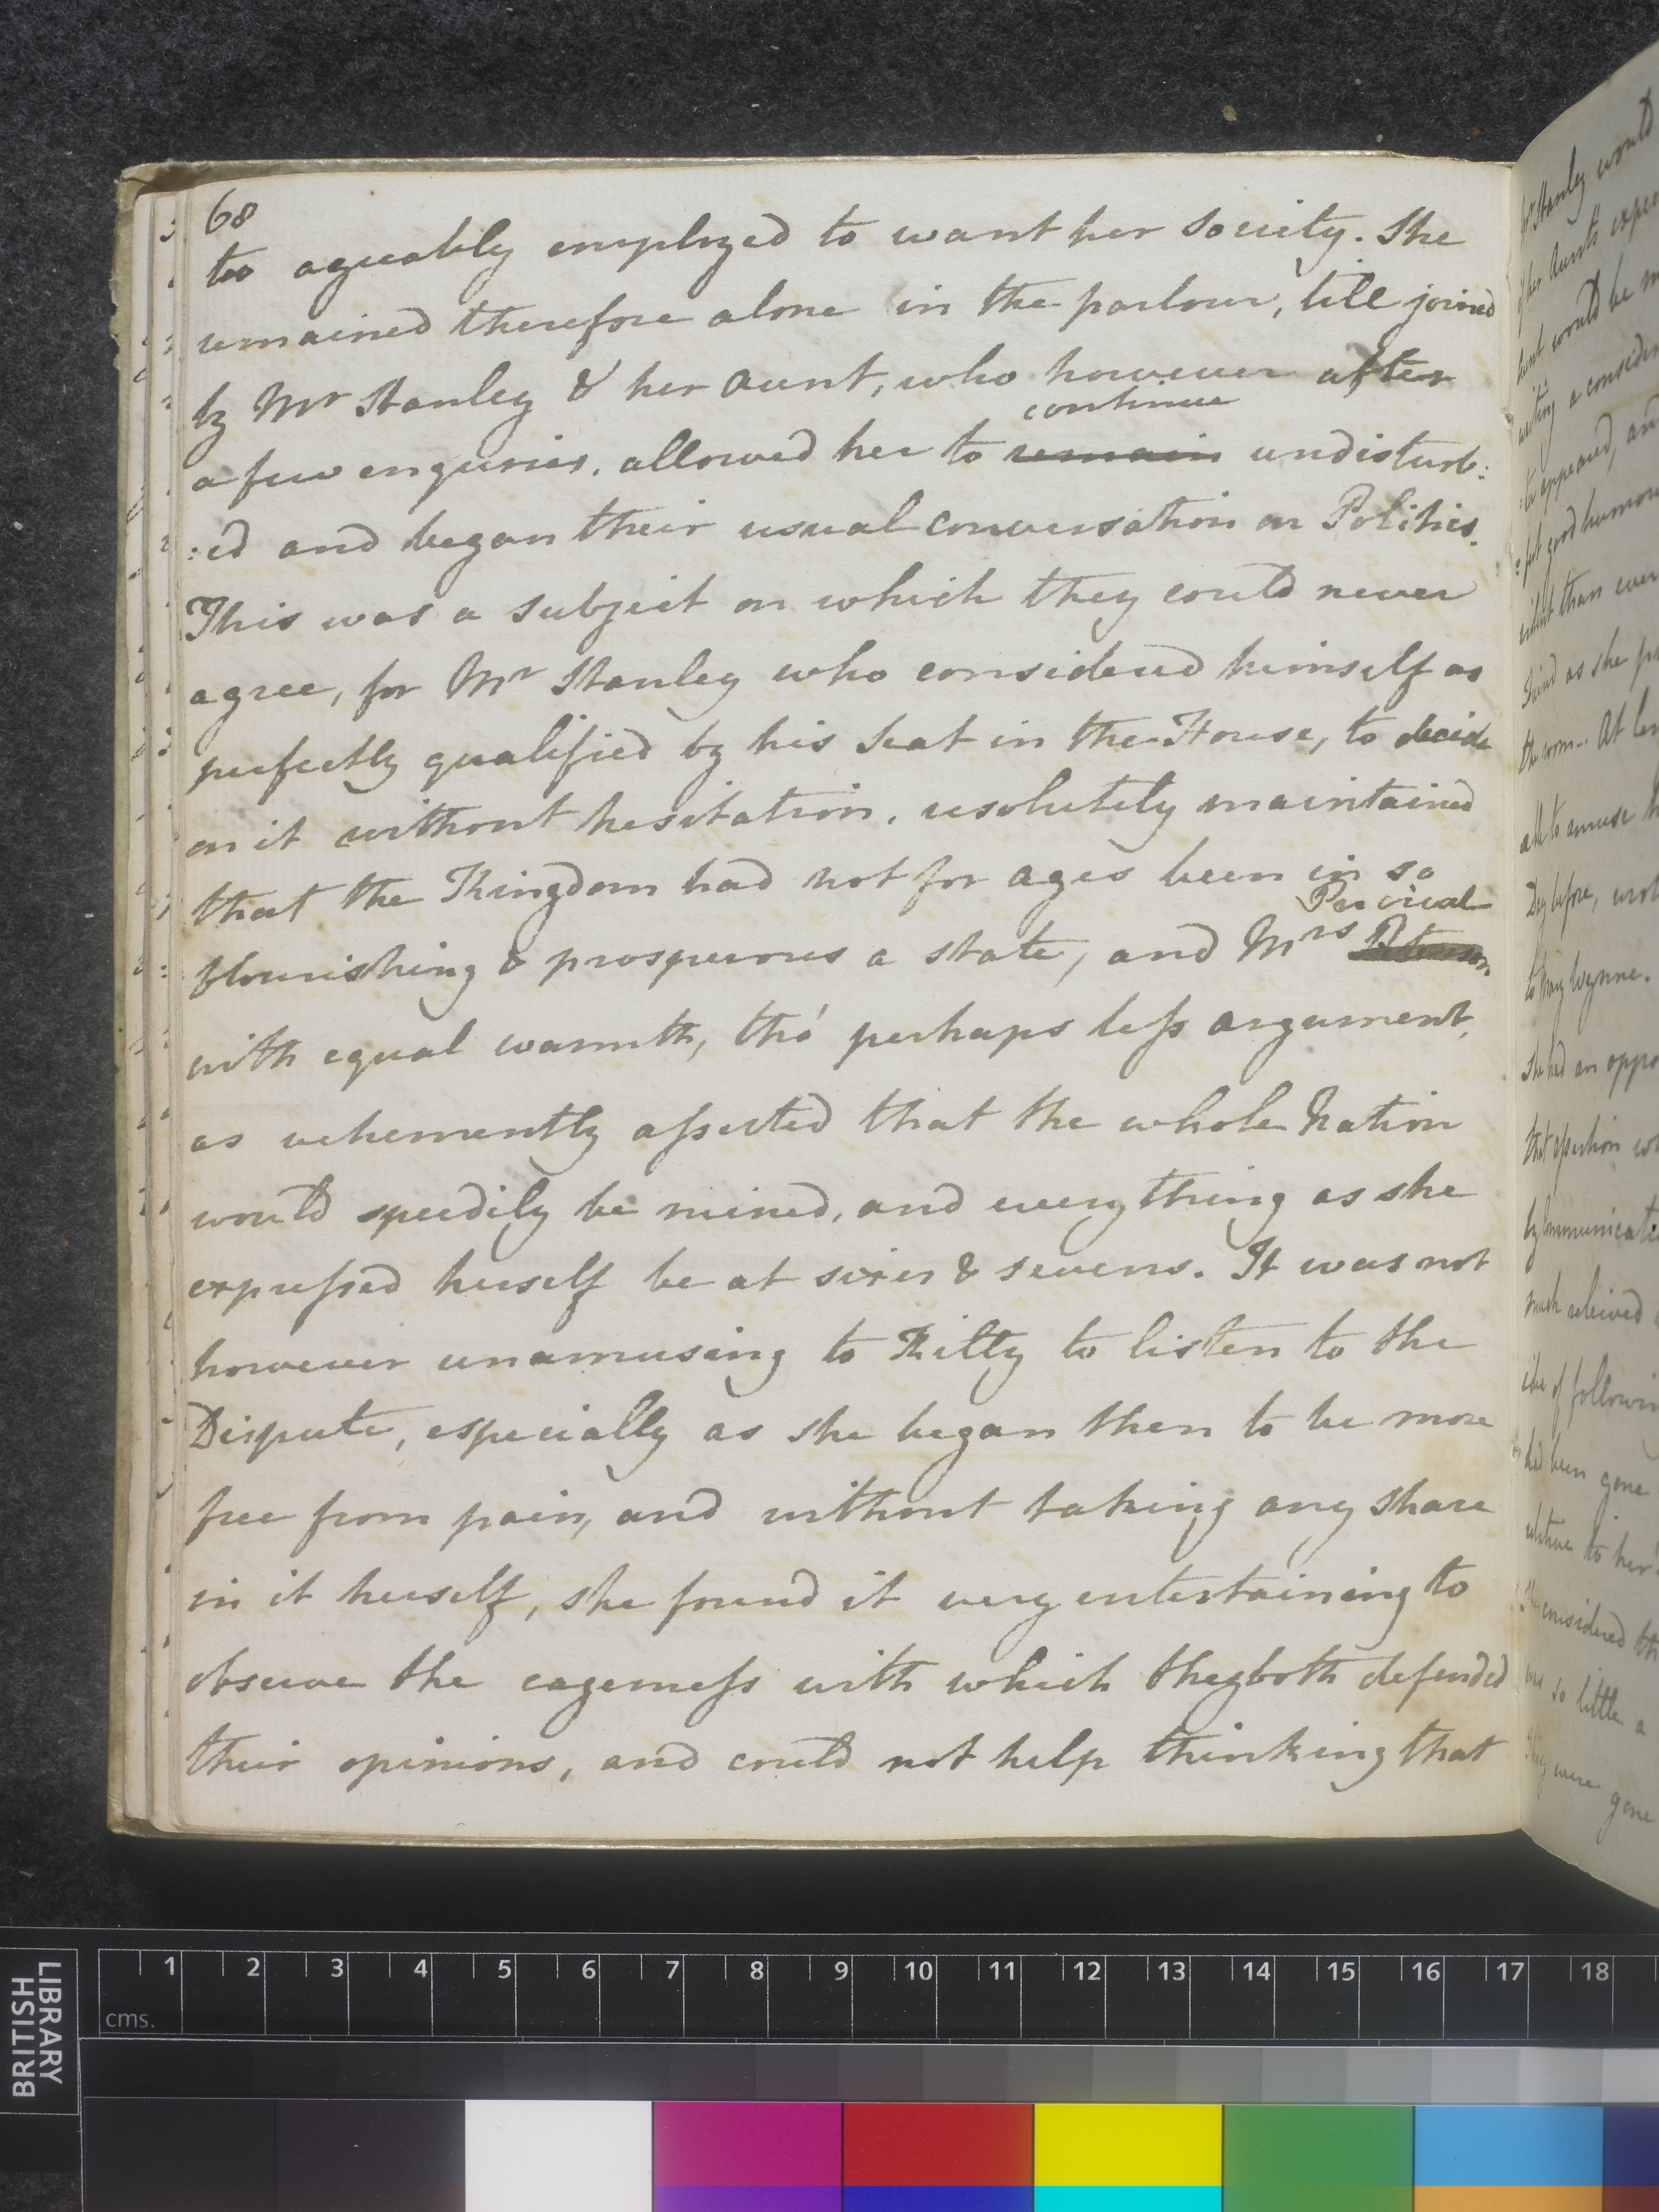 68
too agreably employed to want her Society. She
remained therefore alone in the parlour, till joined
by Mr Stanley & her Aunt, who however after
continue
a few enquiries, allowed her to remain undisturb:
:ed and began their usual conversation on Politics.
This was a subject on which they could never
agree, for Mr Stanley who considered himself as
perfectly qualified by his Seat in the House, to decide
on it without hesitation, resolutely maintained
that the Kingdom had not for ages been in so
Percival
flourishing & prosperous a state, and Mrs Peterson
with equal warmth, tho' perhaps less argument,
as vehemently asserted that the whole Nation
would speedily be ruined, and everything as she
expressed herself be at sixes & sevens. It was not
however unamusing to Kitty to listen to the
Dispute, especially as she began then to be more
free from pain, and without taking any share
in it herself, she found it very entertaining to
observe the eagerness with which they both defended
their opinions, and could not help thinking that
Mr Stanley would
of her Aunt's expec
Aunt would be m
writing a consider
:ter appeared, and
:fect good humour
than ever
as she pa
the room. At len
able to amuse h
Day before, wrot
to Mary Wynne.
She had an oppo
that assertion wh
by communicate
much releived
idea of followin
had been gone
relative to her
She considered th
so little a
They were gone
1 2 3 4 5 6 7 8 9 10 11 12 13 14 15 16 17 18
cms.
BRITISH
LIBRARY